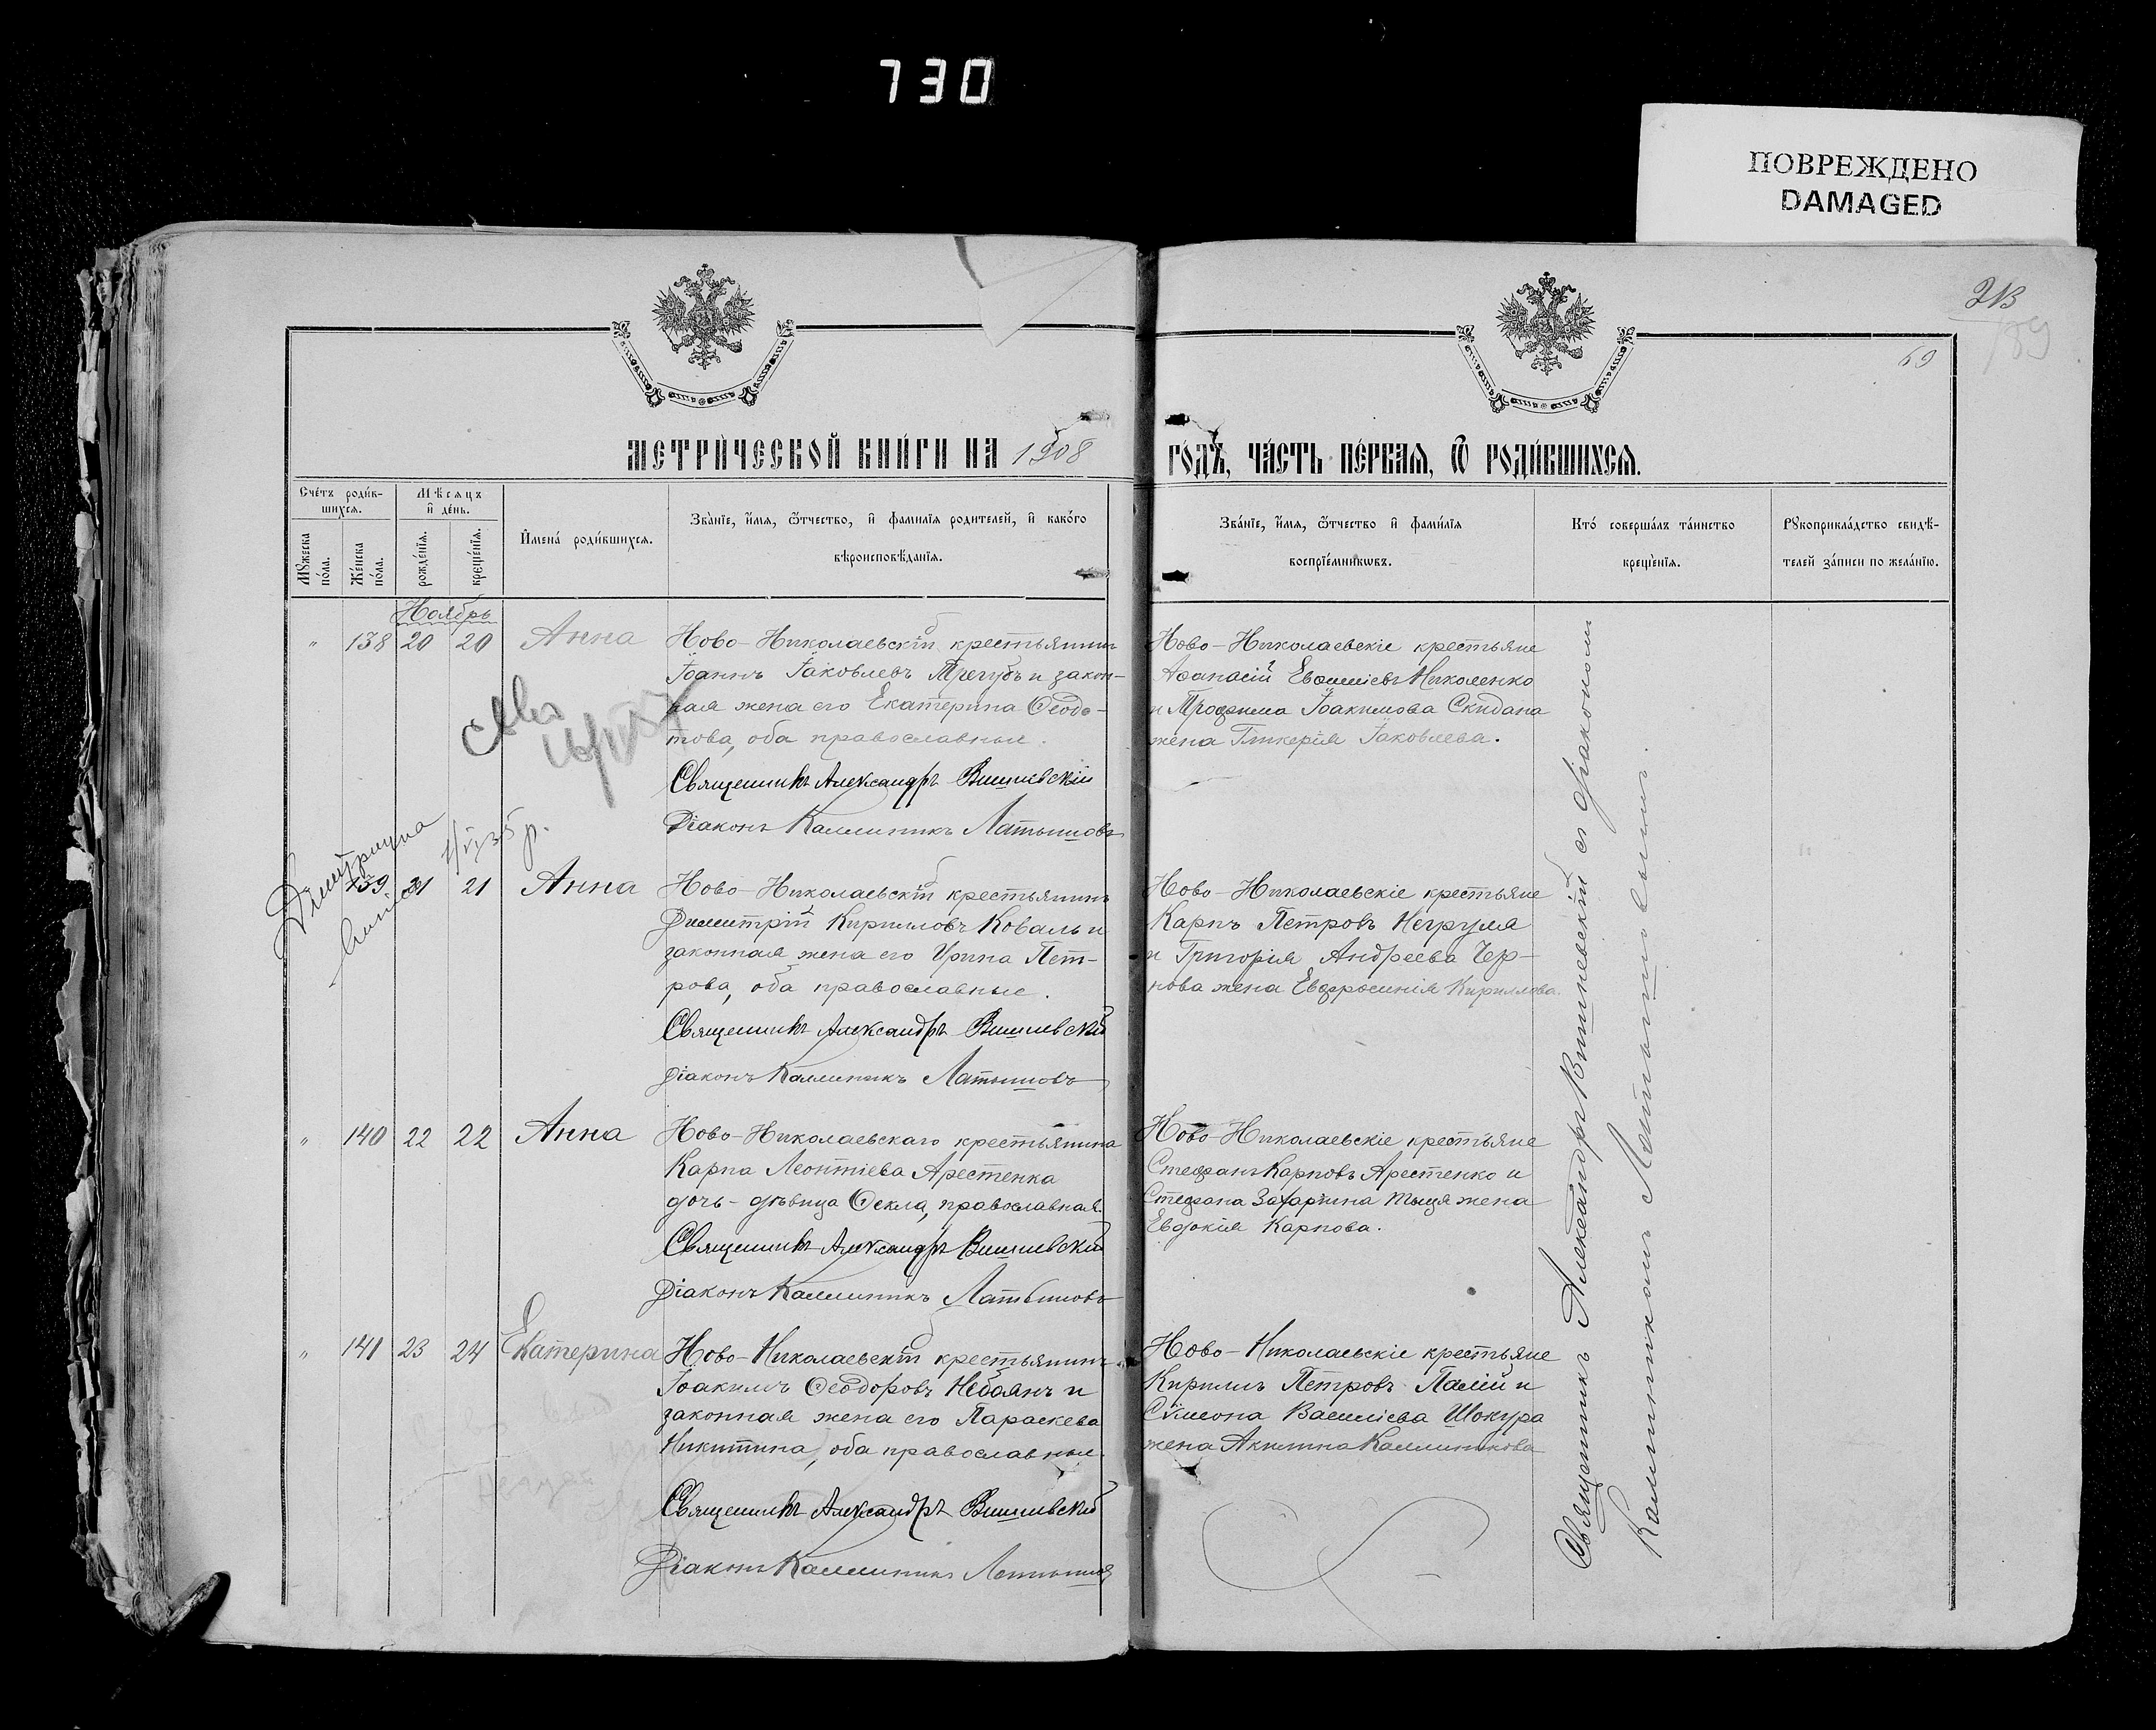 730
ПОВРЕЖДЕНО
DAMAGED
213
189
69
МЕТРИ́ЧЕСКОЙ КНИ́ГИ НА 1908
ГО́ДЪ, ЧА́СТЬ ПЕ́РВАЯ, Ѿ РОДИ́ВШИХСЯ.
Сче́тъ роди́в-
шихся.
Мѣсяцъ
и҆ де́нь.
Мꙋжеска по́ла.
Же́нска по́ла.
рожде́нїя.
креще́нїя.
И҆мена́ роди́вшихся.
Зва́нїе, и҆́мя, ѻ҆́тчество, и҆ фами́лїя роди́телей, и҆ како́го
вѣроисповѣ́данїя.
Зва́нїе, и҆́мя, ѻ҆́тчество и҆ фами́лїя
воспрїе́мникѡвъ.
Кто́ соверша́лъ та́инство
креще́нїя.
Рꙋкоприкла́дство свидѣ́-
телей за́писи по жела́нїю.
Ноябрь
" 138 20 20 Анна
Ново-Николаевскій крестьянинъ
Іоаннъ Іаковлевъ Трегубъ и закон-
ная жена его Екатерина Ѳеодо-
това, оба православные.
Священникъ Александръ Вишневскій
Діаконъ Каллиникъ Латышовъ
Ново-Николаевскіе крестьяне
Аѳанасій Евѳиміевъ Николенко
и Трофима Іоакимова Скидана
жена Гликерія Іаковлева.
139 21 21 Анна
Ново-Николаевскій крестьянинъ
Димитрій Кирилловъ Коваль и
законная жена его Ирина Пет-
рова, оба православные.
Священникъ Александръ Вишневскій
Діаконъ Каллиникъ Латышовъ
Ново-Николаевскіе крестьяне
Карпъ Петровъ Негруля
и Григорія Андреева Чер-
нова жена Евфросинія Кириллова.
" 140 22 22 Анна
Ново-Николаевскаго крестьянина
Карпа Леонтіева Арестенка
дочь-дѣвица Ѳекла, православная.
Священникъ Александръ Вишневскій
Діаконъ Каллиникъ Латышовъ
Ново-Николаевскіе крестьяне
Стефанъ Карповъ Арестенко и
Стефана Захаріина жена
Евдокія Карпова.
" 141 23 24 Екатерина
Ново-Николаевскій крестьянинъ
Іоакимъ Ѳеодоровъ Небоянъ и
законная жена его Параскева
Никитина, оба православные.
Священникъ Александръ Вишневскій
Діаконъ Каллиникъ Латышовъ
Ново-Николаевскіе крестьяне
Кириллъ Петровъ Палій и
Сѵмеона Василіева Шокура
жена Акилина Каллиникова
Священникъ Александръ Вишневскій съ діакономъ
Каллиникомъ Латышовымъ.